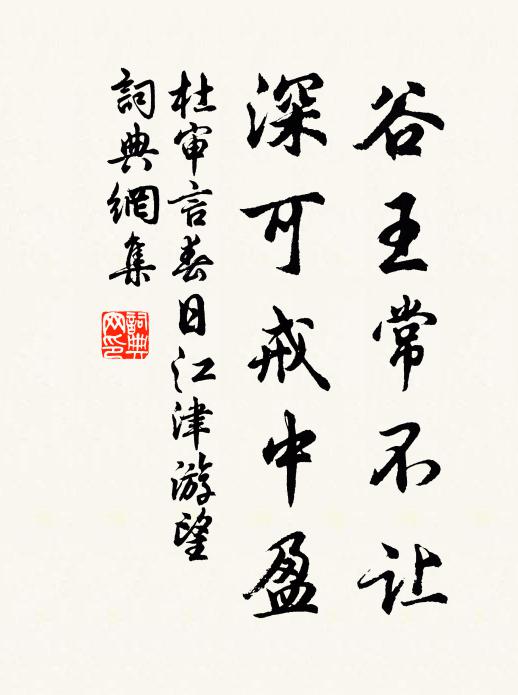 谷王常不让
深可戒中盈
杜审言春日江津游望
詞典網集
詞典网印